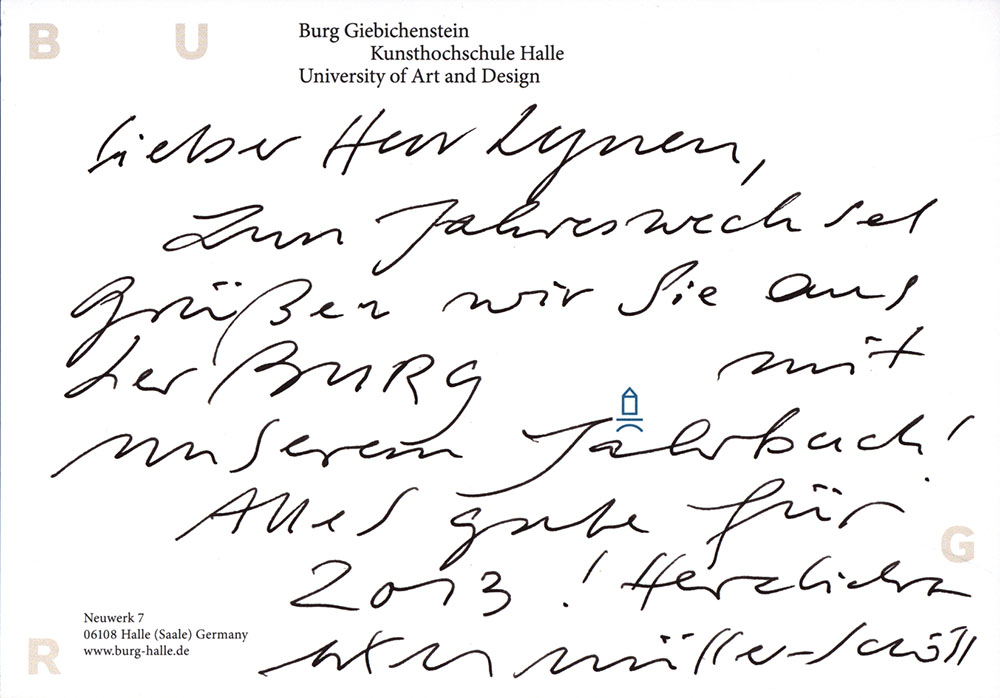 B U
Burg Giebichenstein
Kunsthochschule Halle
University of Art and Design
Lieber Herr Lynen,
Zum Jahreswechsel
grüßen wir Sie aus
der BURG mit
unserem Jahrbuch!
Alles gute für
2013! Herzlichen
G
Neuwerk 7
06108 Halle (Saale) Germany
www.burg-halle.de
R
müller-schöll